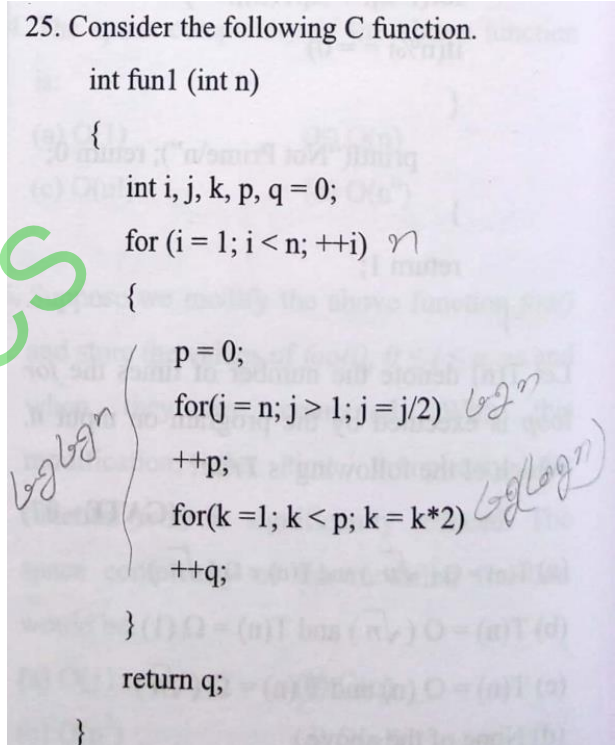 25. Consider the following C function.
int fun1 (int n)
{
int i, j, k, p, q = 0;
for (i = 1; i < n; ++i) n
{
p = 0;
for(j = n; j > 1; j = j/2) log n
++p;
log log n
for(k =1; k < p; k = k*2) log(log n)
++q;
}
return q;
}
CS